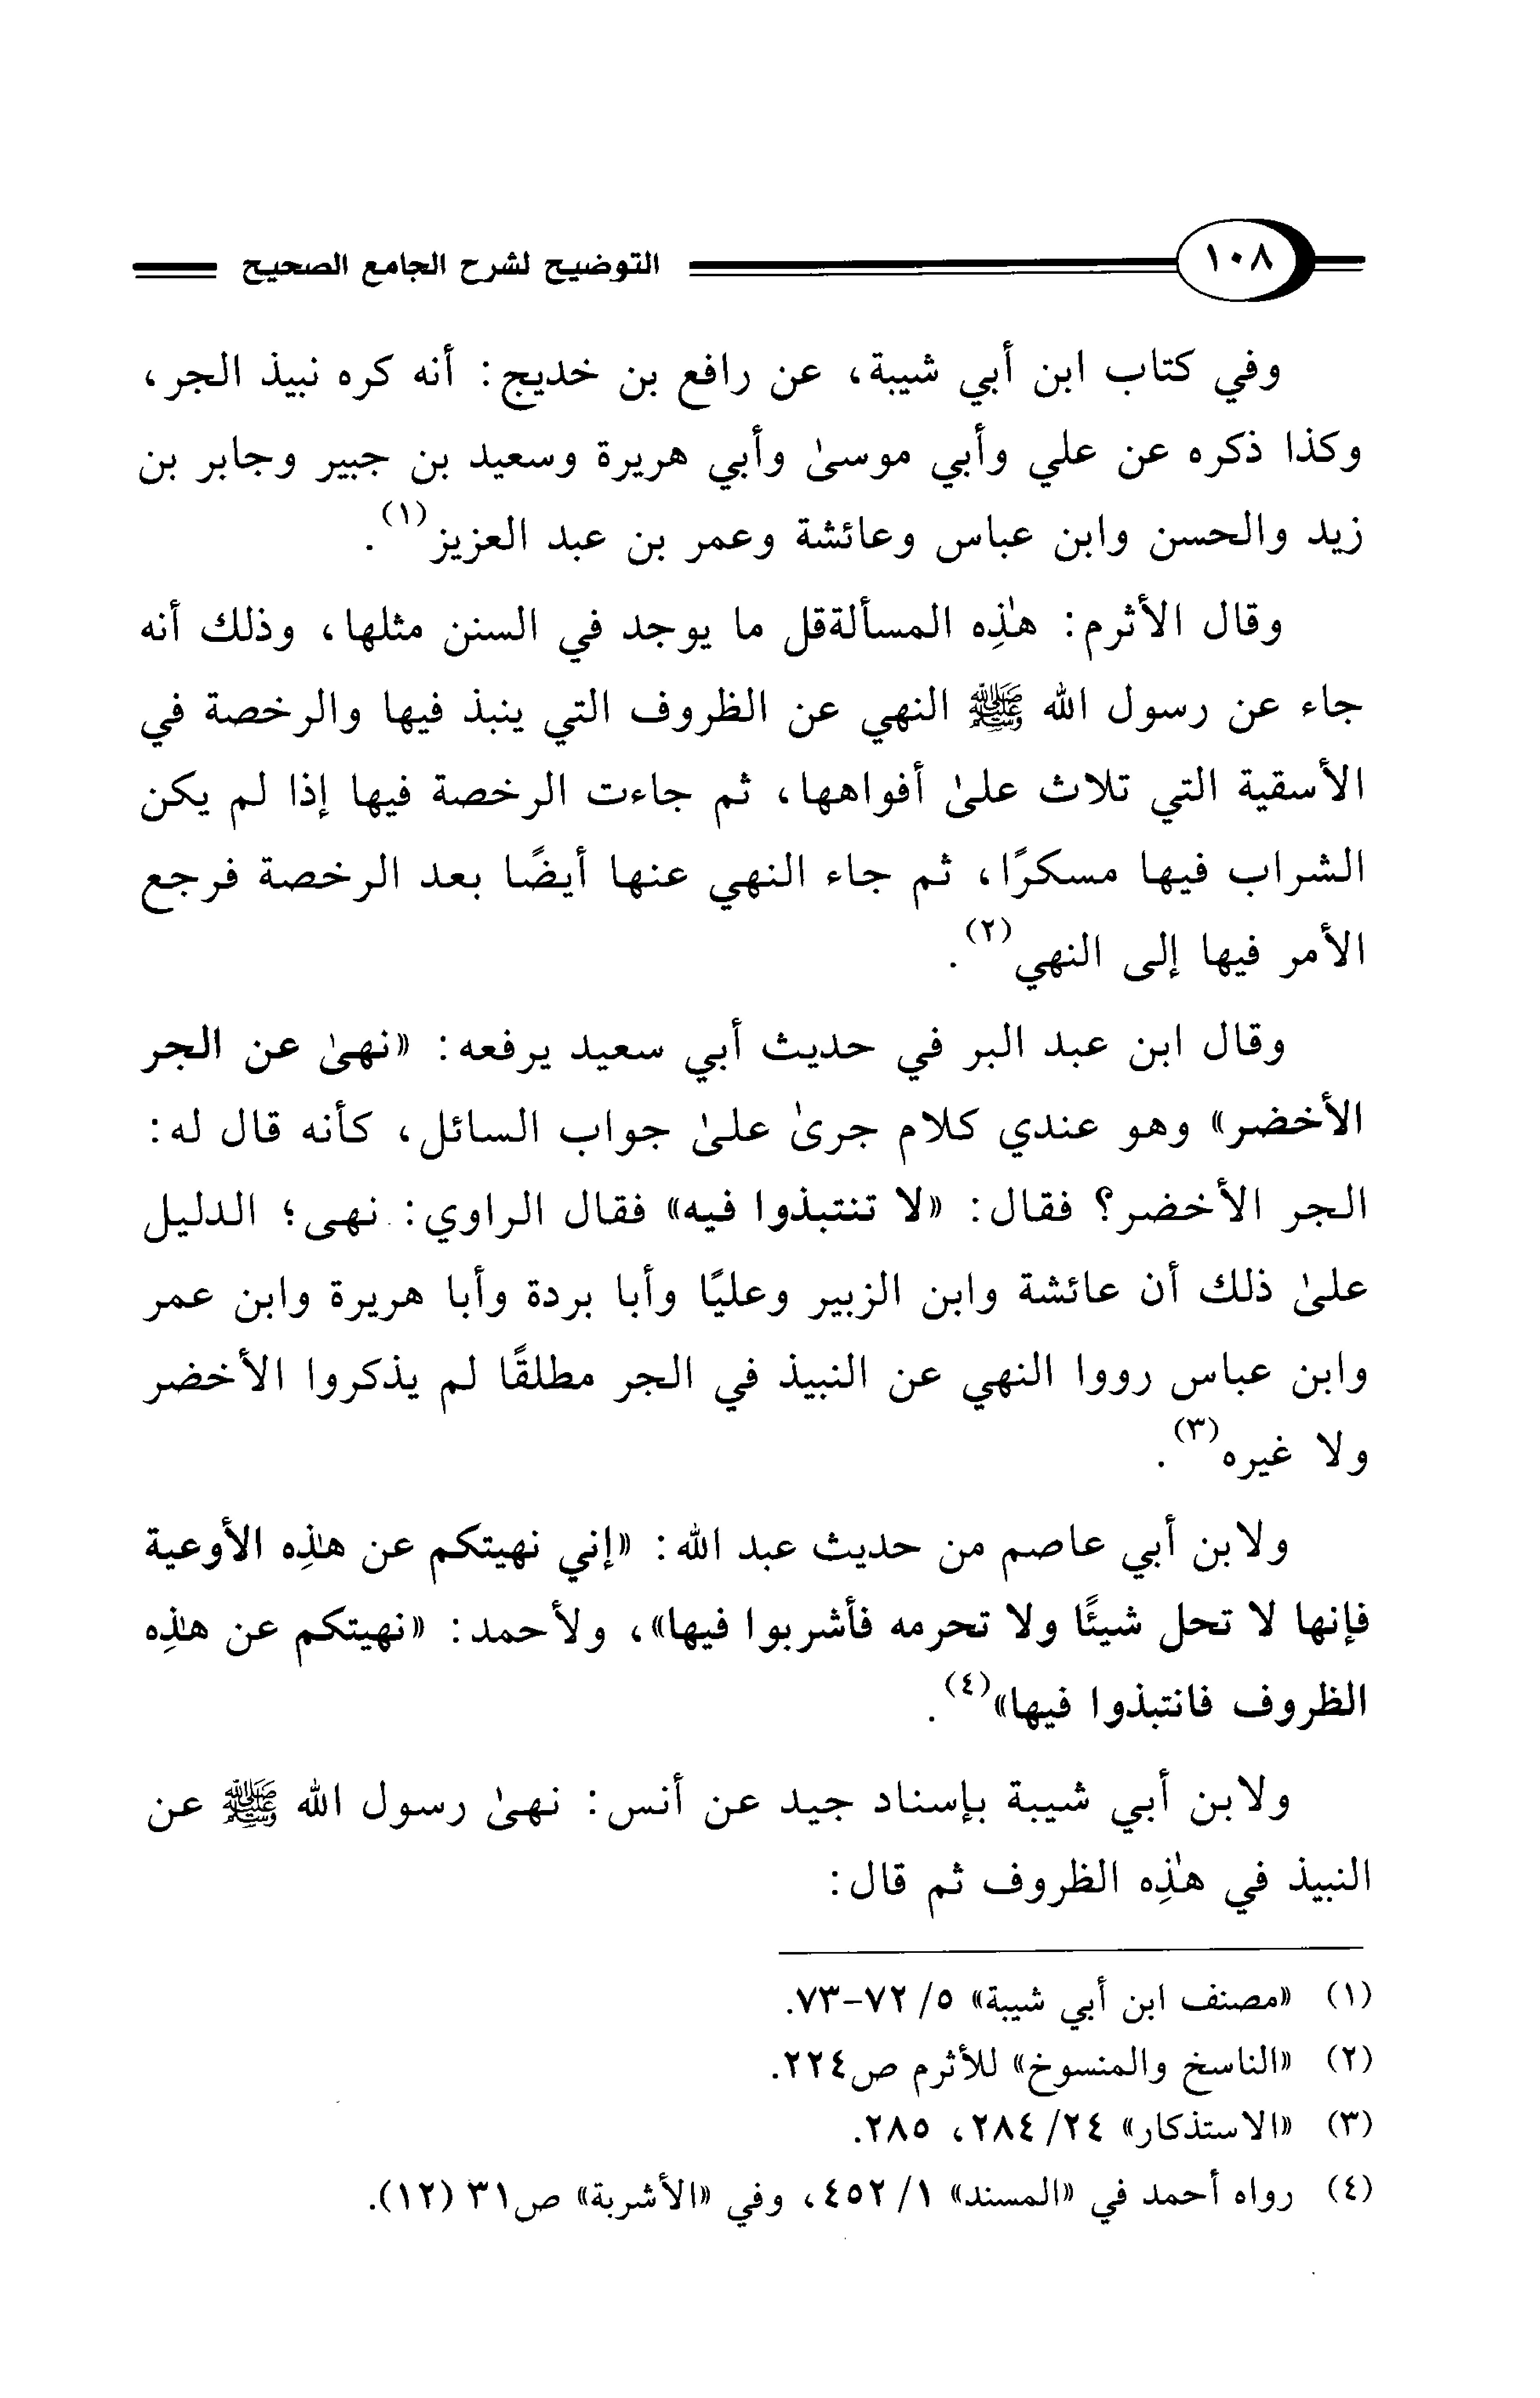 ١٠٨ التوضيح لشرح الجامع الصحيح
وفي كتاب ابن أبي شيبة، عن رافع بن خديج: أنه كره نبيذ الجر،
وكذا ذكره عن علي وأبي موسىٰ وأبي هريرة وسعيد بن جبير وجابر بن
زيد والحسن وابن عباس وعائشة وعمر بن عبد العزيز(١).
وقال الأثرم: هٰذِه المسألةقل ما يوجد في السنن مثلها، وذلك أنه
جاء عن رسول الله ﷺ النهي عن الظروف التي ينبذ فيها والرخصة في
الأسقية التي تلاث علىٰ أفواهها، ثم جاءت الرخصة فيها إذا لم يكن
الشراب فيها مسكرًا، ثم جاء النهي عنها أيضًا بعد الرخصة فرجع
الأمر فيها إلى النهي(٢).
وقال ابن عبد البر في حديث أبي سعيد يرفعه: «نهىٰ عن الجر
الأخضر» وهو عندي كلام جرىٰ علىٰ جواب السائل، كأنه قال له:
الجر الأخضر؟ فقال: «لا تنتبذوا فيه» فقال الراوي: نهى؛ الدليل
علىٰ ذلك أن عائشة وابن الزبير وعليًا وأبا بردة وأبا هريرة وابن عمر
وابن عباس رووا النهي عن النبيذ في الجر مطلقًا لم يذكروا الأخضر
ولا غيره(٣).
ولابن أبي عاصم من حديث عبد الله: «إني نهيتكم عن هٰذِه الأوعية
فإنها لا تحل شيئًا ولا تحرمه فأشربوا فيها»، ولأحمد: «نهيتكم عن هٰذِه
الظروف فانتبذوا فيها»(٤).
ولابن أبي شيبة بإسناد جيد عن أنس: نهىٰ رسول الله ﷺ عن
النبيذ في هٰذِه الظروف ثم قال:
(١) «مصنف ابن أبي شيبة» ٥/ ٧٢-٧٣.
(٢) «الناسخ والمنسوخ» للأثرم ص٢٢٤.
(٣) «الاستذكار» ٢٤/ ٢٨٤، ٢٨٥.
(٤) رواه أحمد في «المسند» ١/ ٤٥٢، وفي «الأشربة» ص٣١ (١٢).